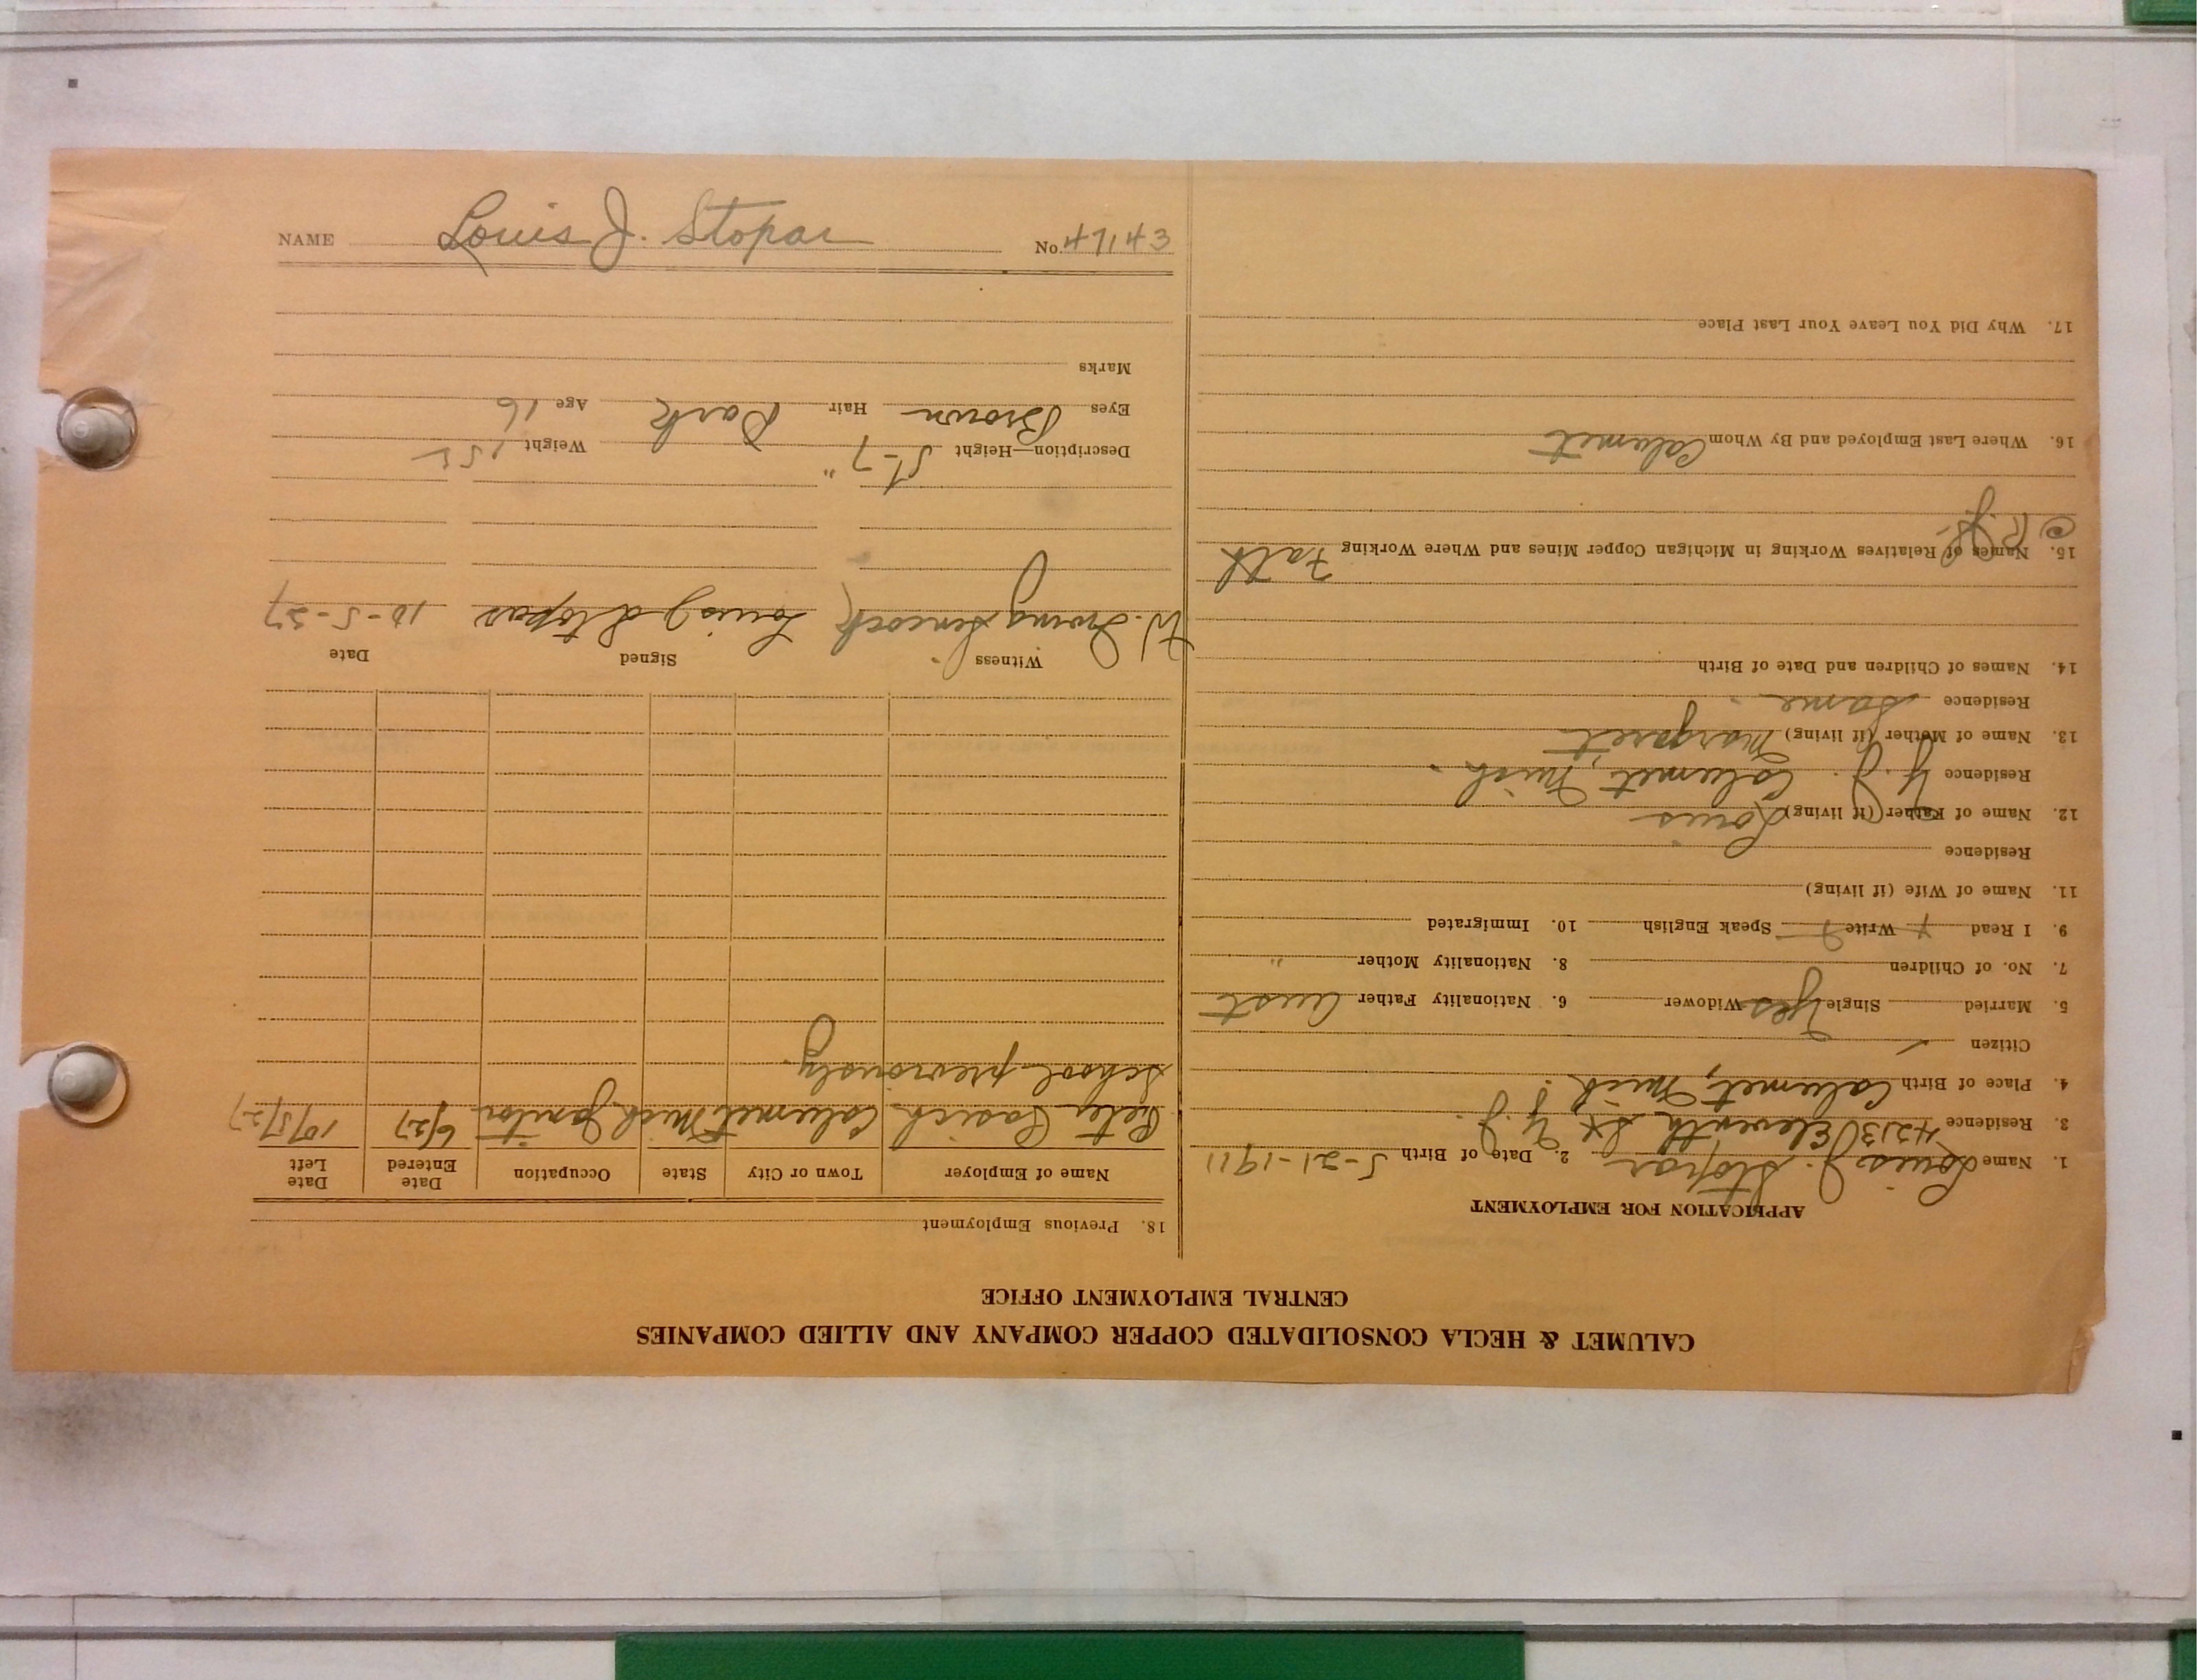 NAME Louis J. Stopar No. 47143
CALUMET & HECLA CONSOLIDATED COPPER COMPANY AND ALLIED COMPANIES
CENTRAL EMPLOYMENT OFFICE
APPLICATION FOR EMPLOYMENT
1. Name Louis J. Stopar 2. Date of Birth 5-21-1911
3. Residence 4213 Eleventh St Y.J.
4. Place of Birth Calumet, Mich.
Citizen ✓
5. Married Single Yes Widower 6. Nationality Father Aust
7. No. of Children 8. Nationality Mother "
9. I Read Write Speak English 10. Immigrated
11. Name of Wife (if living)
Residence
12. Name of Father (if living) Louis
Residence Y.J. Calumet, Mich.
13. Name of Mother (if living) Margaret
Residence Same
14. Names of Children and Date of Birth
15. Names of Relatives Working in Michigan Copper Mines and Where Working Fath
16. Where Last Employed and By Whom Calumet
17. Why Did You Leave Your Last Place
18. Previous Employment
Name of Employer Town or City State Occupation Date Entered Date Left
Peter Casich Calumet Mich Janitor 6/27 10/5/27
School previously
Witness Signed Date
W. Irving Louis J Stopar 10-5-27
Description—Height 5'-7" Weight 152
Eyes Brown Hair Dark Age 16
Marks